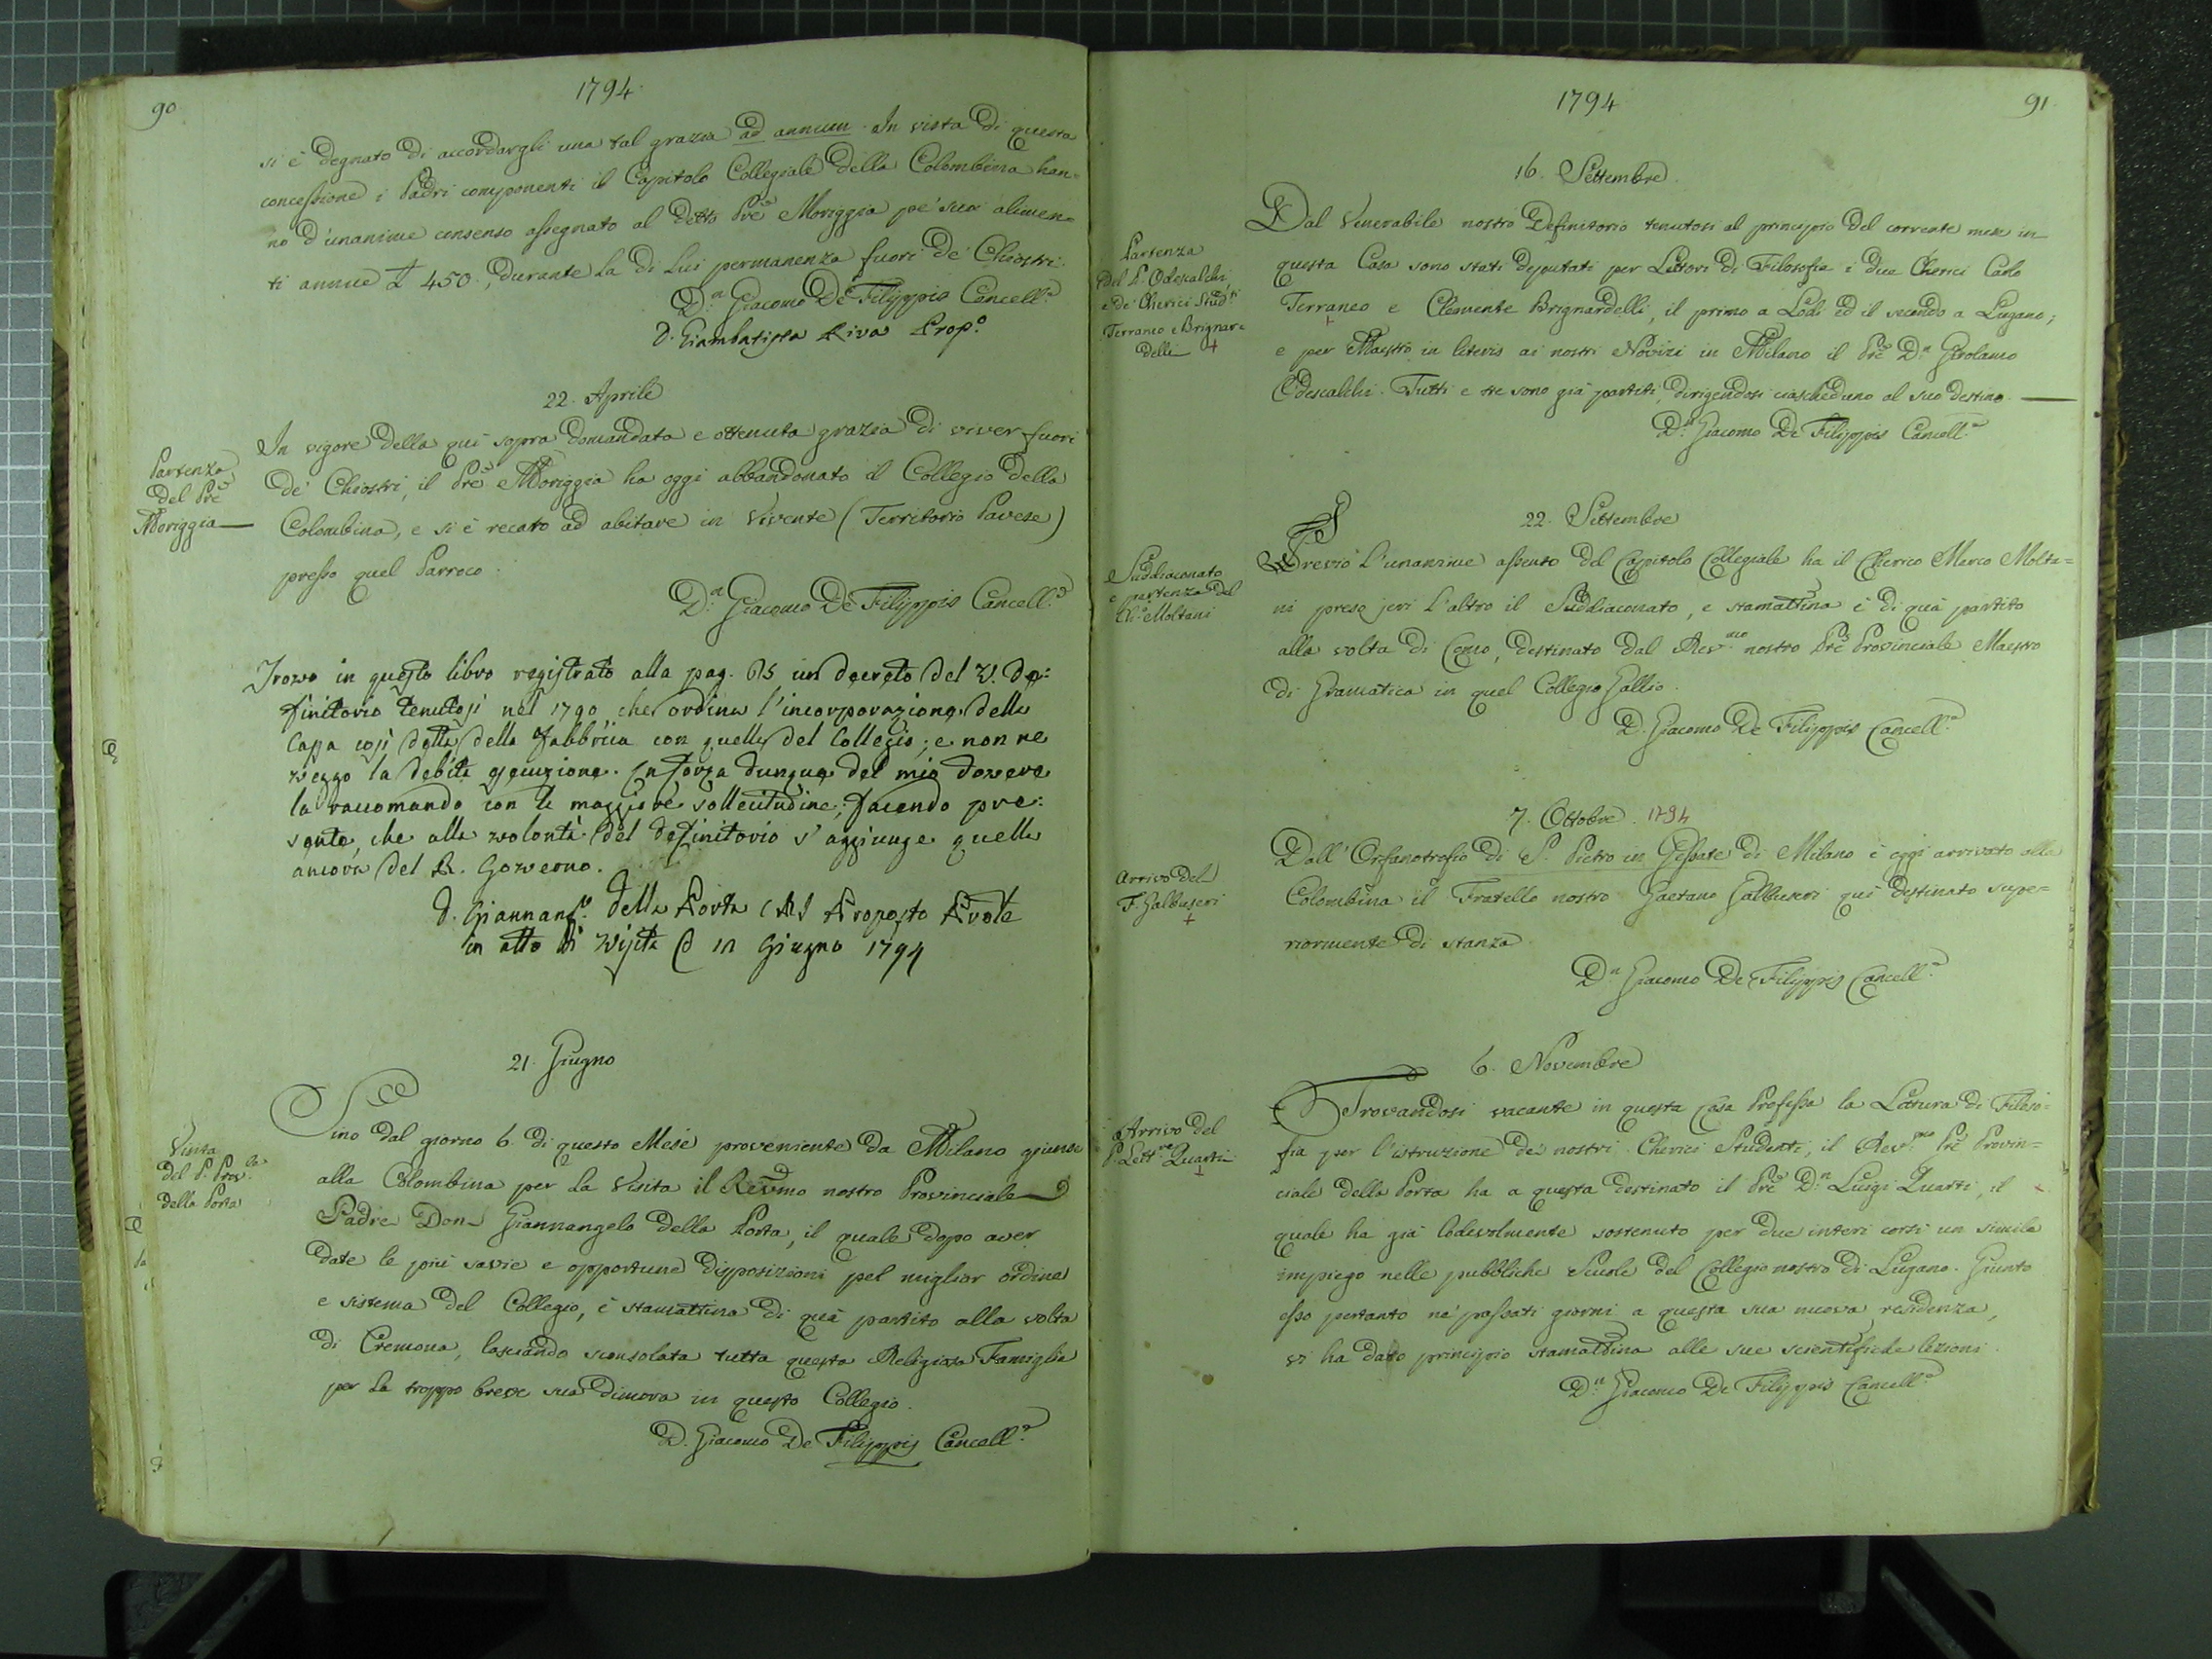 90
1794
si è degnato di accordargli una tal grazia ad annum. In vista di questa
concessione i Padri componenti il Capitolo Collegiale della Colombina han=
no d'unanime consenso assegnato al detto Pre Moriggia pe' suoi alimen=
ti annue £ 450, durante la di lui permanenza fuori de' Chiostri.
D.n Giacomo De Filippis Cancell.e
D. Giambatista Riva Prop.o
22. Aprile
Partenza
del Pre
Moriggia
In vigore della quì sopra domandata e ottenuta grazia di viver fuori
de' Chiostri, il Pre Moriggia ha oggi abbandonato il Collegio della
Colombina, e si è recato ad abitare in Vivente (Territorio Pavese)
presso quel Parroco.
D.n Giacomo De Filippis Cancell.e
Trovo in questo libro registrato alla pag. 65 un decreto del V. De:
finitorio tenutosi nel 1790 che ordina l'incorporazione della
Cassa così detta della fabbrica con quella del Collegio; e non ne
veggo la debita esecuzione. In forza dunque del mio dovere
la raccomando con la maggiore sollecitudine, facendo pre:
sente, che alla volontà del definitorio s'aggiunge quella
ancora del R. Governo.
D. Giannang.o della Porta CRS Preposto Prov.le
in atto di visita @ 12 Giugno 1794
21. Giugno
Visita
del P. Prov.le
della Porta
Sino dal giorno 6 di questo Mese proveniente da Milano giunse
alla Colombina per la Visita il Revmo nostro Provinciale
Padre Don Giannangelo della Porta, il quale dopo aver
date le più savie e opportune disposizioni pel miglior ordine
e sistema del Collegio, è stamattina di quà partito alla volta
di Cremona, lasciando sconsolata tutta questa Religiosa Famiglia
per la troppo breve sua dimora in questo Collegio.
D. Giacomo De Filippis Cancell.e
1794
91.
16. Settembre
Partenza
del P. Odescalchi,
e de' Cherici Stud.ti
Terraneo e Brignar=
delli +
Dal Venerabile nostro Definitorio tenutosi al principio del corrente mese in
questa Casa sono stati deputati per Lettori di Filosofia i due Cherici Carlo
Terraneo e Clemente Brignardelli, il primo a Lodi ed il secondo a Lugano;
e per Maestro in literis ai nostri Novizi in Milano il Pre D.n Girolamo
Odescalchi. Tutti e tre sono già partiti, dirigendosi ciascheduno al suo destino.
D.n Giacomo De Filippis Cancell.e
22. Settembre
Suddiaconato
e partenza del
Ch.o Moltani
Previo l'unanime assento del Capitolo Collegiale ha il Cherico Marco Molta=
ni preso jeri l'altro il Suddiaconato, e stamattina è di quà partito
alla volta di Como, destinato dal Rev.mo nostro Pre Provinciale Maestro
di Gramatica in quel Collegio Gallio.
D. Giacomo De Filippis Cancell.e
7. Ottobre. 1794
Arrivo del
F. Galbuseri
+
Dall'Orfanotrofio di S. Pietro in Gessate di Milano è oggi arrivato alla
Colombina il Fratello nostro Gaetano Galbuseri quì destinato supe=
riormente di stanza.
D.n Giacomo De Filippis Cancell.e
6. Novembre
Arrivo del
P. Lett.re Quarti
+
Trovandosi vacante in questa Casa Professa la Lettura di Filoso=
fia per l'istruzione de' nostri Cherici Studenti, il Rev.mo Pre Provin=
ciale della Porta ha a questa destinato il Pre D.n Luigi Quarti, il
quale ha già lodevolmente sostenuto per due interi corsi un simile
impiego nelle pubbliche Scuole del Collegio nostro di Lugano. Giunto
esso pertanto ne' passati giorni a questa sua nuova residenza,
vi ha dato principio stamattina alle sue scientifiche lezioni.
D.n Giacomo De Filippis Cancell.e